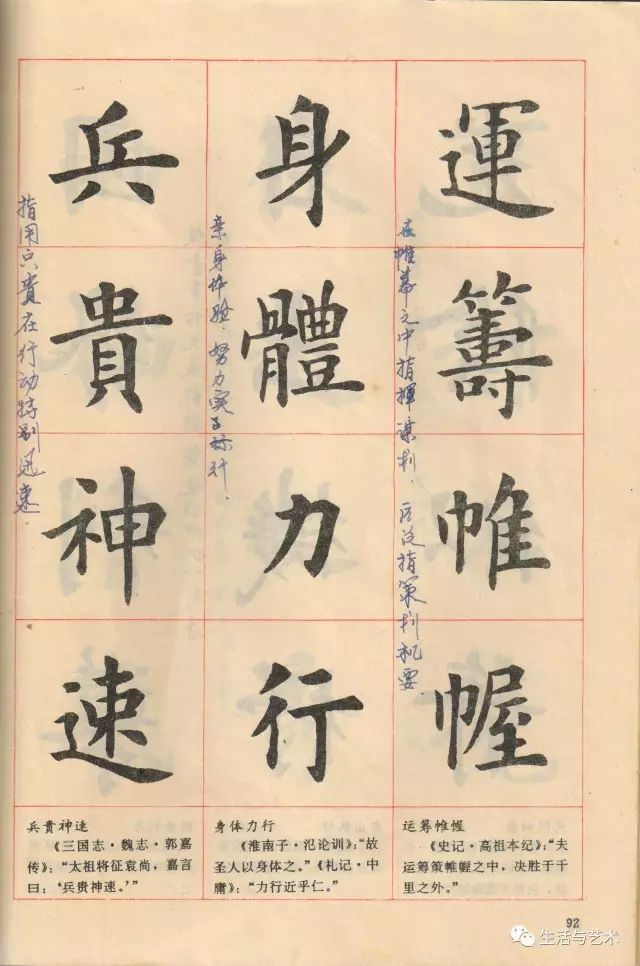 運籌帷幄
在帷幕之中指揮谋划.后泛指策划机要.
身體力行
亲身体验.努力
兵貴神速
指用兵貴在行动特别迅速.
兵贵神速
《三国志·魏志·郭嘉
传》：“太祖将征袁尚，嘉言
曰：‘兵贵神速。’”
身体力行
《淮南子·氾论训》：“故
圣人以身体之。”《礼记·中
庸》：“力行近乎仁。”
运筹帷幄
《史记·高祖本纪》：“夫
运筹策帷幄之中，决胜于千
里之外。”
92
生活与艺术